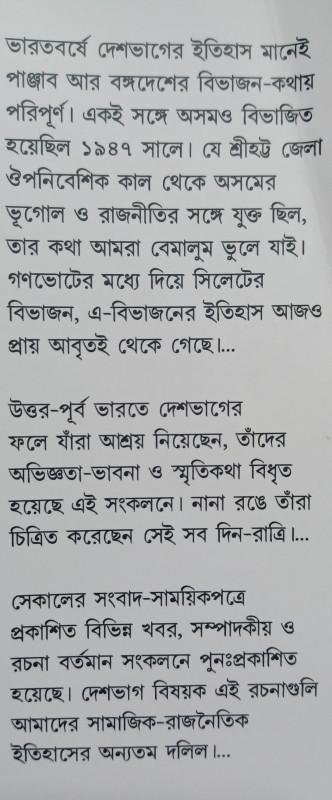 ভারতবর্ষে দেশভাগের ইতিহাস মানেই
পাঞ্জাব আর বঙ্গদেশের বিভাজন-কথায়
পরিপূর্ণ। একই সঙ্গে অসমও বিভাজিত
হয়েছিল ১৯৪৭ সালে। যে শ্রীহট্ট জেলা
ঔপনিবেশিক কাল থেকে অসমের
ভূগোল ও রাজনীতির সঙ্গে যুক্ত ছিল,
তার কথা আমরা বেমালুম ভুলে যাই।
গণভোটের মধ্যে দিয়ে সিলেটের
বিভাজন, এ-বিভাজনের ইতিহাস আজও
প্রায় আবৃতই থেকে গেছে।...

উত্তর-পূর্ব ভারতে দেশভাগের
ফলে যাঁরা আশ্রয় নিয়েছেন, তাঁদের
অভিজ্ঞতা-ভাবনা ও স্মৃতিকথা বিধৃত
হয়েছে এই সংকলনে। নানা রঙে তাঁরা
চিত্রিত করেছেন সেই সব দিন-রাত্রি।...

সেকালের সংবাদ-সাময়িকপত্রে
প্রকাশিত বিভিন্ন খবর, সম্পাদকীয় ও
রচনা বর্তমান সংকলনে পুনঃপ্রকাশিত
হয়েছে। দেশভাগ বিষয়ক এই রচনাগুলি
আমাদের সামাজিক-রাজনৈতিক
ইতিহাসের অন্যতম দলিল।...